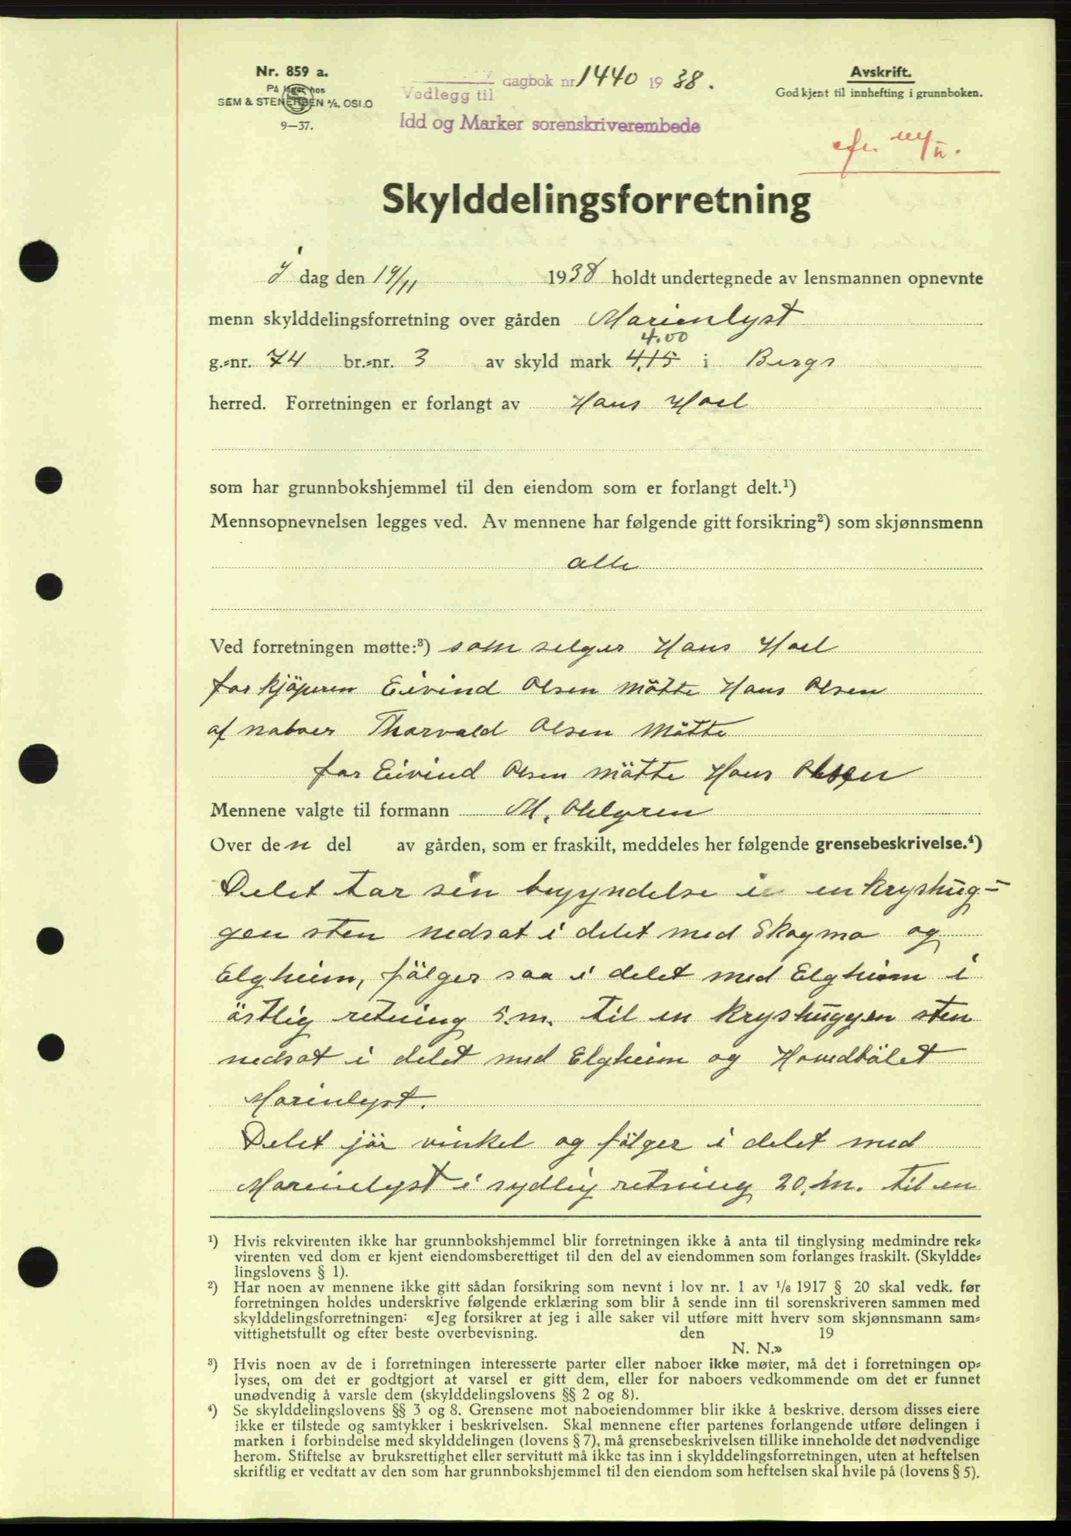 Nr. 859 a.
På lager hos
SEM & STENERSEN A/S, OSLO
9—37.
Vedlegg til dagbok nr 1440 1938.
Idd og Marker sorenskriverembede
Avskrift.
Godkjent til innhefting i grunnboken.
Skylddelingsforretning
I dag den 19/11 1938 holdt undertegnede av lensmannen opnevnte
menn skylddelingsforretning over gården Marienlyst
4.00
g.-nr. 74 br.-nr. 3 av skyld mark 4,15 i Bergs
herred. Forretningen er forlangt av Hans Hoel
som har grunnbokshjemmel til den eiendom som er forlangt delt.¹)
Mennsopnevnelsen legges ved. Av mennene har følgende gitt forsikring²) som skjønnsmenn
alle
Ved forretningen møtte:³) som selger Hans Hoel
for kjöperen Eivind Olsen mötte Hans Olsen
af naboer Thorvald Olsen Mötte
for Eivind Olsen mötte Hans Olsen
Mennene valgte til formann M. Ohlgren
Over den del av gården, som er fraskilt, meddeles her følgende grensebeskrivelse.⁴)
Delet tar sin begyndelse i en kryshug-
gen sten nedsat i delet med Skogmo og
Elgheim, fölger saa i delet med Elgheim i
östlig retning 5.m. til en kryshuggen sten
nedsat i delet med Elgheim og Hovedbölet
Marinlyst.
Delet jör vinkel og fölger i delet med
Marienlyst i sydlig retning 20.m. til en
¹) Hvis rekvirenten ikke har grunnbokshjemmel blir forretningen ikke å anta til tinglysing medmindre rek-
virenten ved dom er kjent eiendomsberettiget til den del av eiendommen som forlanges fraskilt. (Skyldde-
lingslovens § 1).
²) Har noen av mennene ikke gitt sådan forsikring som nevnt i lov nr. 1 av 1/6 1917 § 20 skal vedk. før
forretningen holdes underskrive følgende erklæring som blir å sende inn til sorenskriveren sammen med
skylddelingsforretningen: «Jeg forsikrer at jeg i alle saker vil utføre mitt hverv som skjønnsmann sam-
vittighetsfullt og efter beste overbevisning. den 19
N. N.»
³) Hvis noen av de i forretningen interesserte parter eller naboer ikke møter, må det i forretningen op-
lyses, om det er godtgjort at varsel er gitt dem, eller for naboers vedkommende om det er funnet
unødvendig å varsle dem (skylddelingslovens §§ 2 og 8).
⁴) Se skylddelingslovens §§ 3 og 8. Grensene mot naboeiendommer blir ikke å beskrive, dersom disses eiere
ikke er tilstede og samtykker i beskrivelsen. Skal mennene efter partenes forlangende utføre delingen i
marken i forbindelse med skylddelingen (lovens § 7), må grensebeskrivelsen tillike inneholde det nødvendige
herom. Stiftelse av bruksrettighet eller servitutt må ikke tas inn i skylddelingsforretningen, uten at heftelsen
skriftlig er vedtatt av den som har grunnbokshjemmel til den eiendom som heftelsen skal hvile på (lovens § 5).